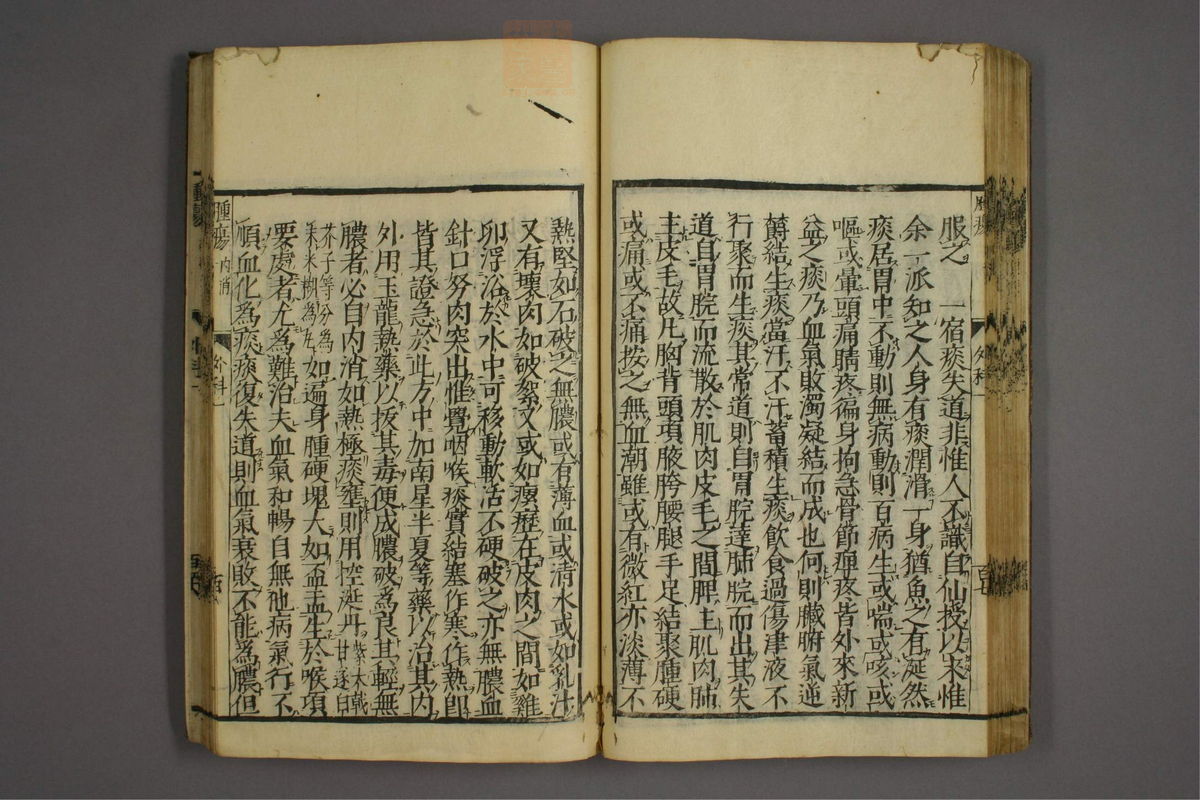 服之　一宿痰失道非惟人不識自仙授以來惟
余一派知之人身有痰潤滑一身猶魚之有涎然
痰居胃中不動則無病動則百病生或喘或咳或
嘔或暈頭痛睛疼徧身拘急骨節痺疼皆外來新
益之痰乃血氣敗濁凝結而成也何則臟腑氣逆
欝結生痰當汗不汗蓄積生痰飲食過傷津液不
行聚而生痰其常道則自胃脘達肺脘而出其失
道自胃脘而流散於肌肉皮毛之間脾主肌肉肺
主皮毛故凡胸背頭項腋胯腰腿手足結聚腫硬
或痛或不痛按之無血潮雖或有微紅亦淡薄不
熱堅如石破之無膿或有薄血或清水或如乳汁
又有壞肉如破絮又或如瘰癧在皮肉之間如雞
卵浮浴於水中可移動軟活不硬破之亦無膿血
針口努肉突出惟覺咽喉痰實結塞作寒作熱即
皆其證急於此方中加南星半夏等藥以治其內
外用玉龍熱藥以拔其毒便成膿破為良其輕無
膿者必自內消如熱極痰壅則用控涎丹紫大戟甘遂白
芥子等分為末米糊為丸如遍身腫硬塊大如盂盂生於喉項
要處者尤為難治夫血氣和暢自無他病氣行不
順血化為痰痰復失道則血氣衰敗不能為膿但
腫瘍 內消
外科一